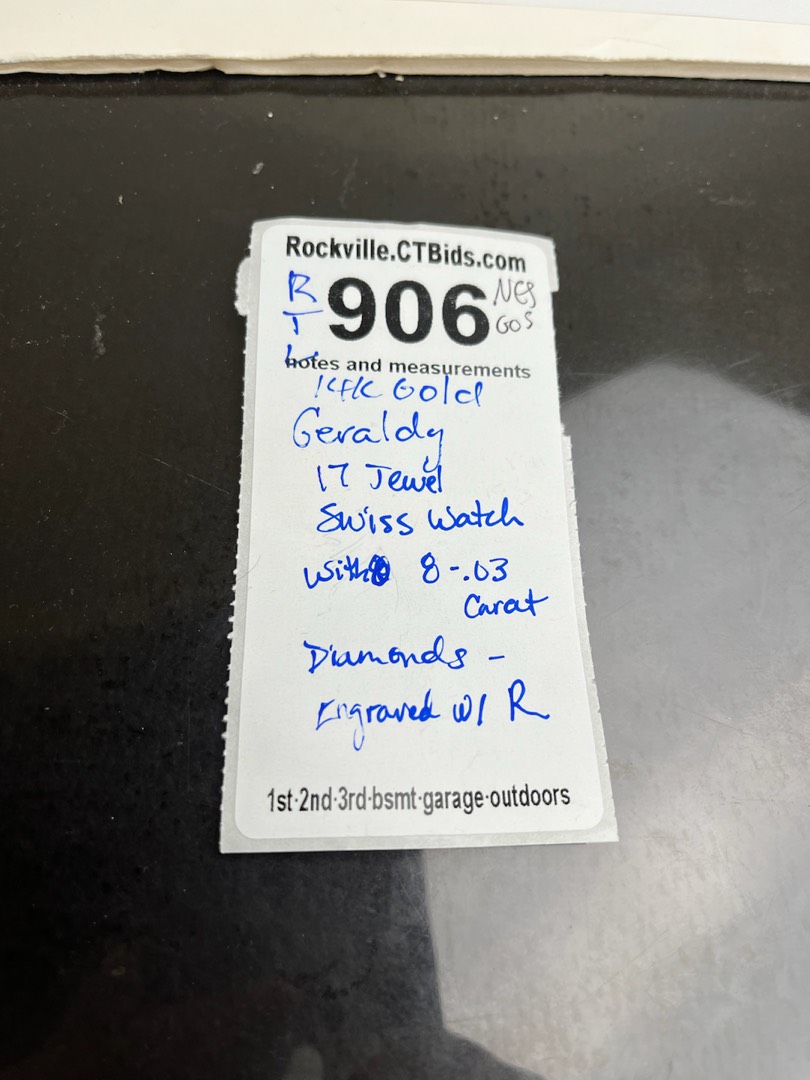 Rockville.CTBids.com
R
T
L
906
NGS
GOS
notes and measurements
14K Gold
Geraldy
17 Jewel
Swiss Watch
with 8-.03
Carat
Diamonds -
Engraved w/ R
1st·2nd·3rd·bsmt·garage·outdoors